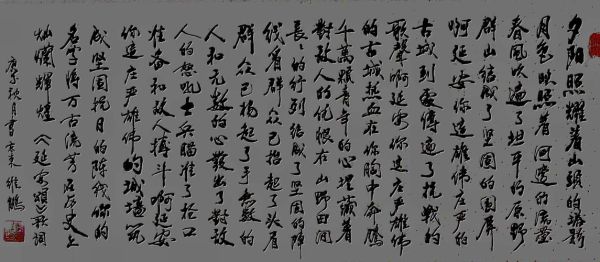 夕阳照耀着山头的塔影
月色映照着河边的流萤
春风吹遍了坦平的原野
群山结成了坚固的围屏
啊延安你这雄伟庄严的
古城到处传遍了抗战的
歌声啊延安你这庄严雄伟
的古城热血在你胸中奔腾
千萬颗青年的心埋藏着
對敌人的仇恨在山野田间
长长的行列结成了坚固的阵
线看群众已抬起了头看
群众已扬起了手无数的
人和无数的心发出了对敌
人的怒吼士兵瞄准了枪口
准备和敌人搏斗啊延安
你这庄严雄伟的城墙筑
成坚固抗日的阵线你的
名字将万古流芳在历史上
灿烂辉煌《延安颂》歌词
庚子秋月书